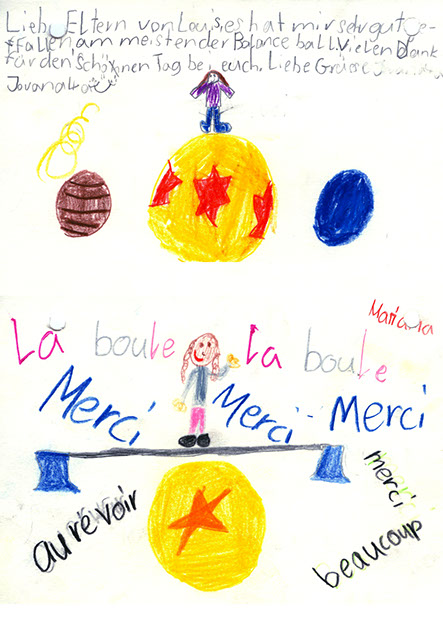 Liebe Eltern von Louis, es hat mir sehr gut ge-
fallen am meisten der Balance ball. Vielen Dank
für den schönen Tag bei euch. Liebe Grüsse
Jovana
Mariana
La boule la boule
Merci Merci Merci
au revoir
merci
beaucoup